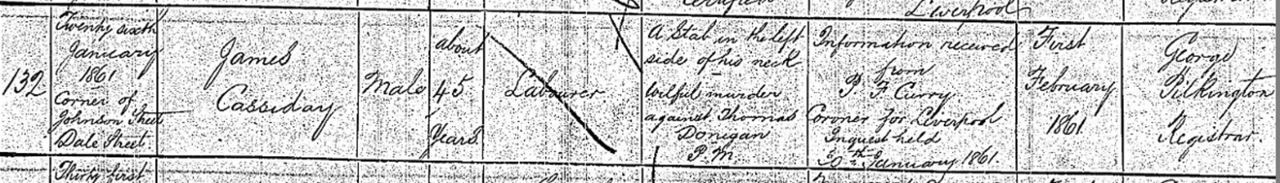 Liverpool
132
Twenty sixth
January
1861
Corner of
Johnson Street
Dale Street
James
Cassiday
Male
about
45
Years
Labourer
A Stab in the left
side of his neck
Wilful murder
against Thomas
Donigan
P.M.
Information received
from
P. F. Curry
Coroner for Liverpool
Inquest held
January 1861.
First
February
1861
George
Pilkington
Registrar.
Thirty first